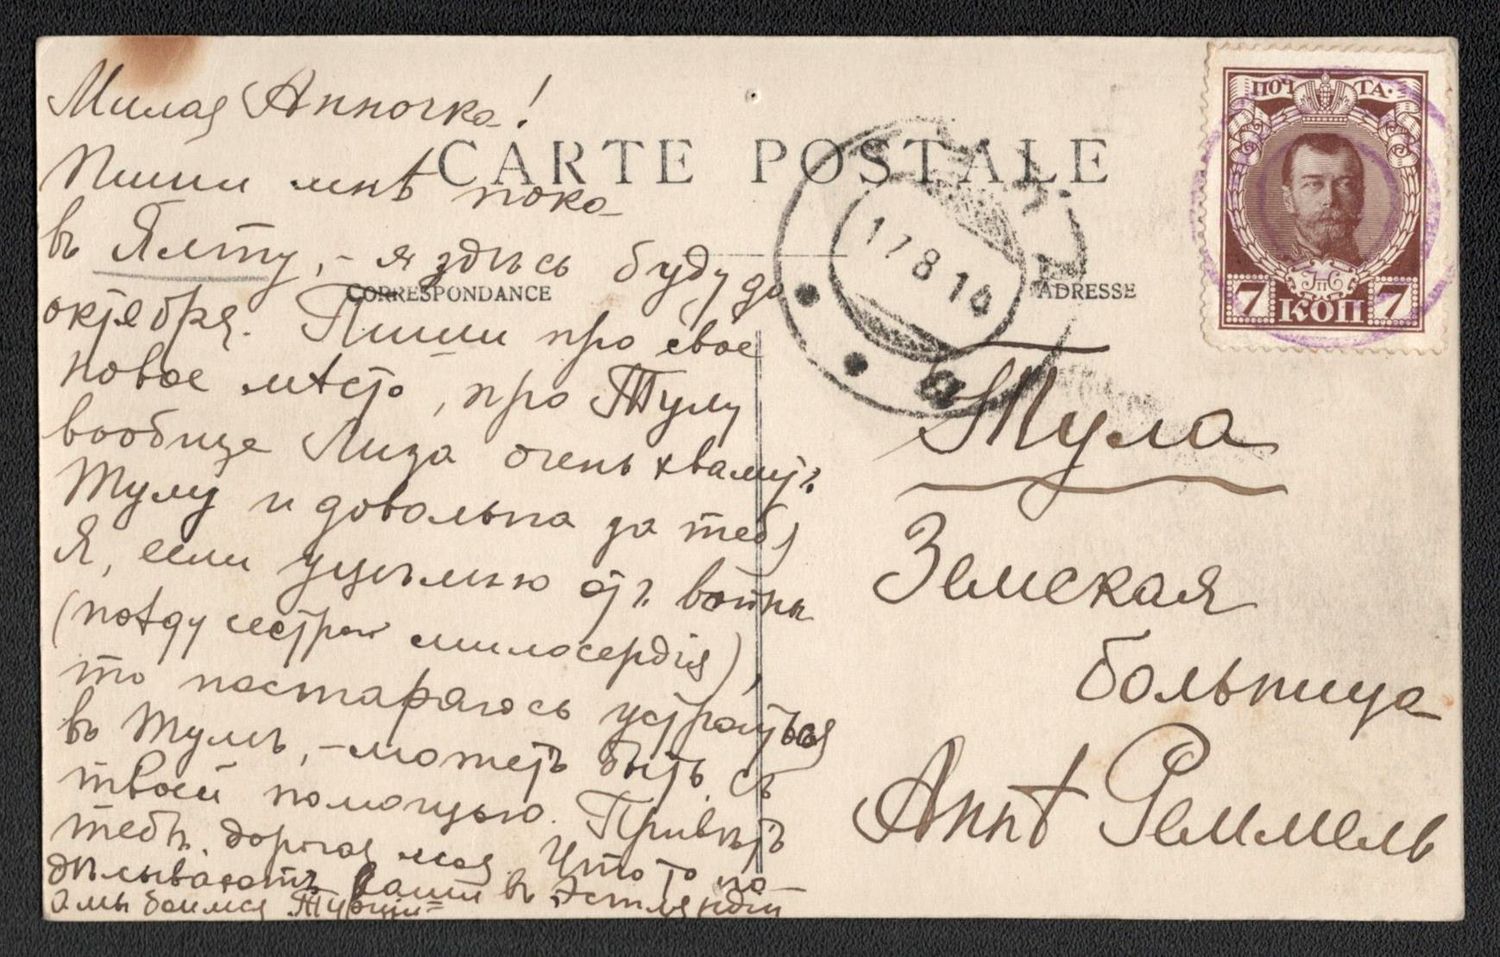 Милая Анночка!
CARTE POSTALE
Пиши мнѣ пока
въ Ялту, - я здѣсь буду до
CORRESPONDANCE
октября. Пиши про свое
новое мѣсто, про Тулу
вообще Лиза очень хвалитъ
Тулу и довольна за тебя
Я, если уцѣлѣю отъ войны
(поѣду сестрой милосердія),
то постараюсь устроиться
въ Тулѣ, - можетъ быть, съ
твоей помощью. Привѣтъ
тебѣ, дорогая моя. Что то по-
дѣлываютъ ваши въ Эстляндіи
а мы боимся Турціи
17 8 14
ADRESSE
ПОЧТА.
7 КОП 7
Тула
Земская
больница
Аннѣ Реммель